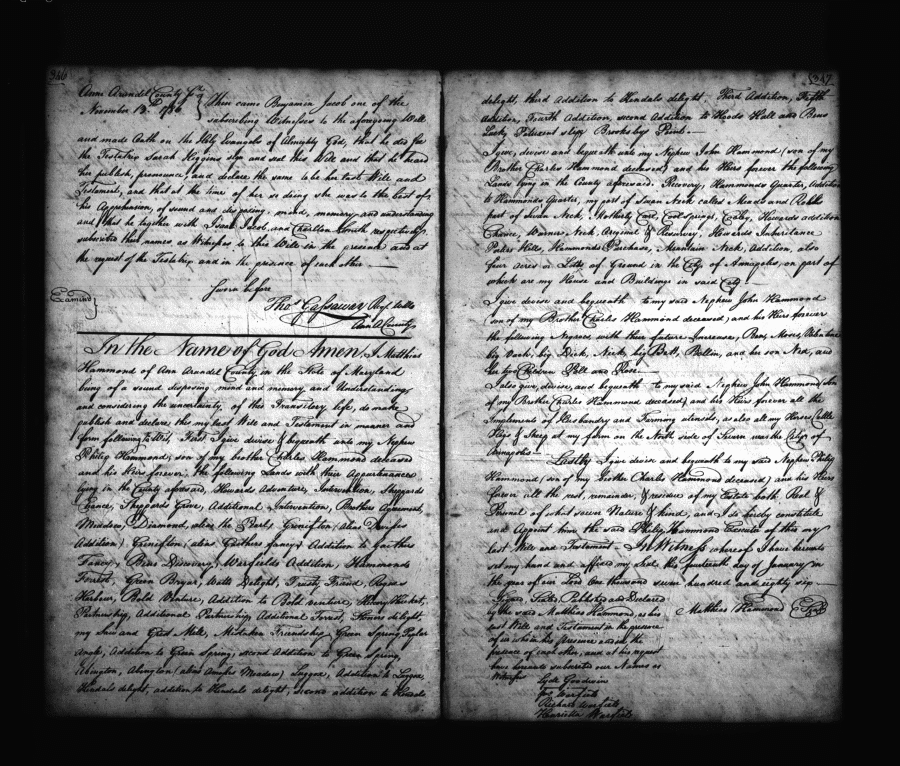 346
Anne Arundel County Sct.
November 13th 1786
Then came Benjamin Jacob one of the
subscribing Witnesses to the aforegoing Will
and made Oath on the Holy Evangels of Almighty God, that he did see
the Testatrix Sarah Higgins sign and seal this Will and that he heard
her publish, pronounce, and declare the same to be her last Will and
Testament, and that at the time of her so doing she was to the best of
his Apprehension, of sound and disposing mind, memory, and understanding
and that he together with Isaac Jacob, and South respectively
subscribed their names as Witnesses to this Will in the presence and at
the request of the Testatrix and in the presence of each other
Sworn before
Thos Gassaway Regr Wills
Ann A County
Examined
In the Name of God Amen, I Matthias
Hammond of Ann Arundel County in the State of Maryland
being of a sound disposing mind and memory and Understanding
and considering the uncertainty of this Transitory life, do make
publish and declare this my last Will and Testament in manner and
form following to Wit, First I give devise & bequeath unto my Nephew
Philip Hammond, son of my brother Charles Hammond deceased
and his Heirs forever, the following Lands with their Appurtenances
lying in the County aforesaid, Howards Adventure, Intervention, Sheppards
Chance, Sheppards Grove, Additional Intervention, Brothers Agreement,
Meadow, Diamond, alias the Grinifton (alias
Addition) Grinifton (alias Gaithers fancy) Addition to Gaithers
Fancy, Bens Discovery, Warfields Addition, Hammonds
Forrest, Green Bryar, Watts Delight, Trusty Friend, Rogues
Harbour, Bold Venture, Addition to Bold Venture, Henry
Partnership, Additional Partnership, Additional Forrest, Honors delight,
my and Grist Mill, Mistaken Friendship, Green Spring, Taylor
Angle, Addition to Green Spring, second Addition to Green Spring,
Abington, Abington (alias Meadow) Luggox, Addition to Luggox,
Hendals delight, addition to Hendals delight, second addition to Hendals
347
delight, third addition to Hendals delight, Third Addition, Fifth
Addition, Fourth Addition, second Addition to Hoods Hall and Bens
Luck, Patuxent Brooksby Point.
I give, devise and bequeath unto my Nephew John Hammond (son of my
Brother Charles Hammond deceased) and his Heirs forever the following
Lands lying in the County aforesaid. Recovery, Hammonds Quarter, Addition
to Hammonds Quarter, my part of Swan Neck called Meads and Rable
part of Swan Neck, Cool Springs, Howards addition
Chance, Warner Neck, Original & Recovery, Howards Inheritance
Porters Hills, Hammonds Purchase, Mountain Neck, Addition, also
four acres or Lotts of Ground in the City of Annapolis, on part of
which are my House and Buildings in said City
I give devise and bequeath to my said Nephew John Hammond
(son of my Brother Charles Hammond deceased) and his Heirs forever
the following Negroes with their future Increase, Ben, Moses, Valentine
big Jack, big Dick, Nick, big Bett, Bellin, and her son Ned, and
her two Children Poll and Rose
I also give, devise, and bequeath to my said Nephew John Hammond son
of my Brother Charles Hammond deceased, and his Heirs forever all the
Implements of Husbandry and Farming utensils, as also all my Horses, Cattle
Hogs & Sheep at my farm on the North side of Severn near the City of
Annapolis
Lastly I give devise and bequeath to my said Nephew Philip
Hammond (son of my brother Charles Hammond deceased) and his Heirs
forever all the rest, remainder, & residue of my Estate both Real &
Personal of what soever Nature & kind, and I do hereby constitute
and Appoint him the said Philip Hammond Executor of this my
last Will and Testament. In Witness whereof I have hereunto
set my hand and affixed my seal, the fourteenth day of January in
the year of our Lord One thousand seven hundred and eighty six
Signed, Sealed, Published and Declared
by the said Matthias Hammond, as his
Matthias Hammond Seal
last Will and Testament in the presence
of us who in his presence and in the
presence of each other, and at his request
have hereunto subscribed our Names as
Witnesses
Lyde Goodwin
Jos Warfield
Richard Warfield
Henrietta Warfield